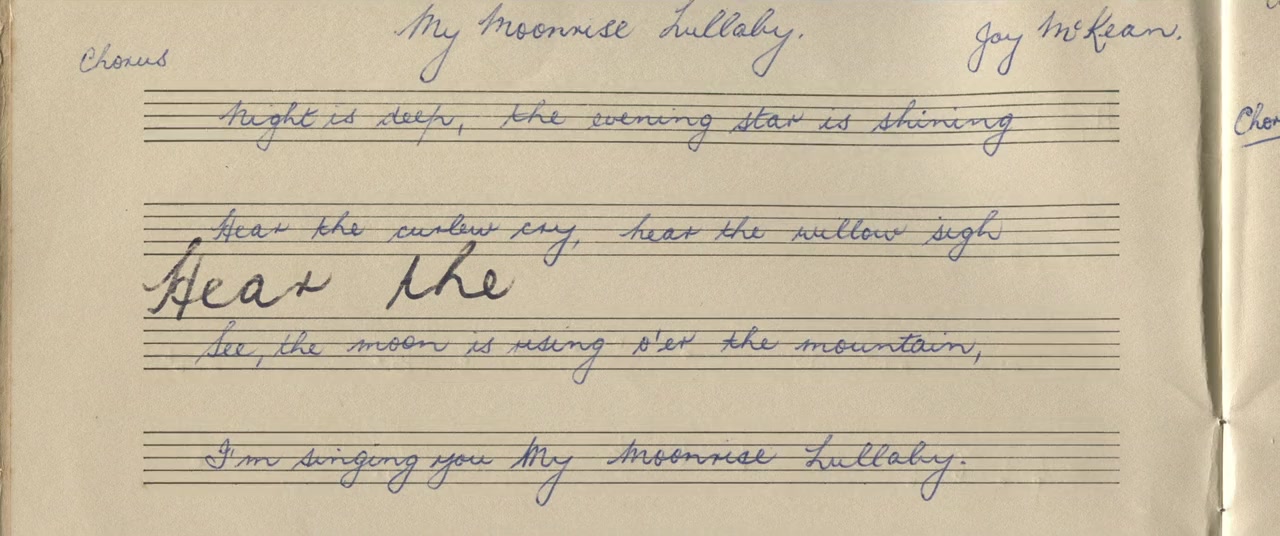 My Moonrise Lullaby. Joy McKean.
Chorus
Night is deep, the evening star is shining
Hear the curlew cry, hear the willow sigh
Hear the
See, the moon is rising o'er the mountain,
I'm singing you My Moonrise Lullaby.